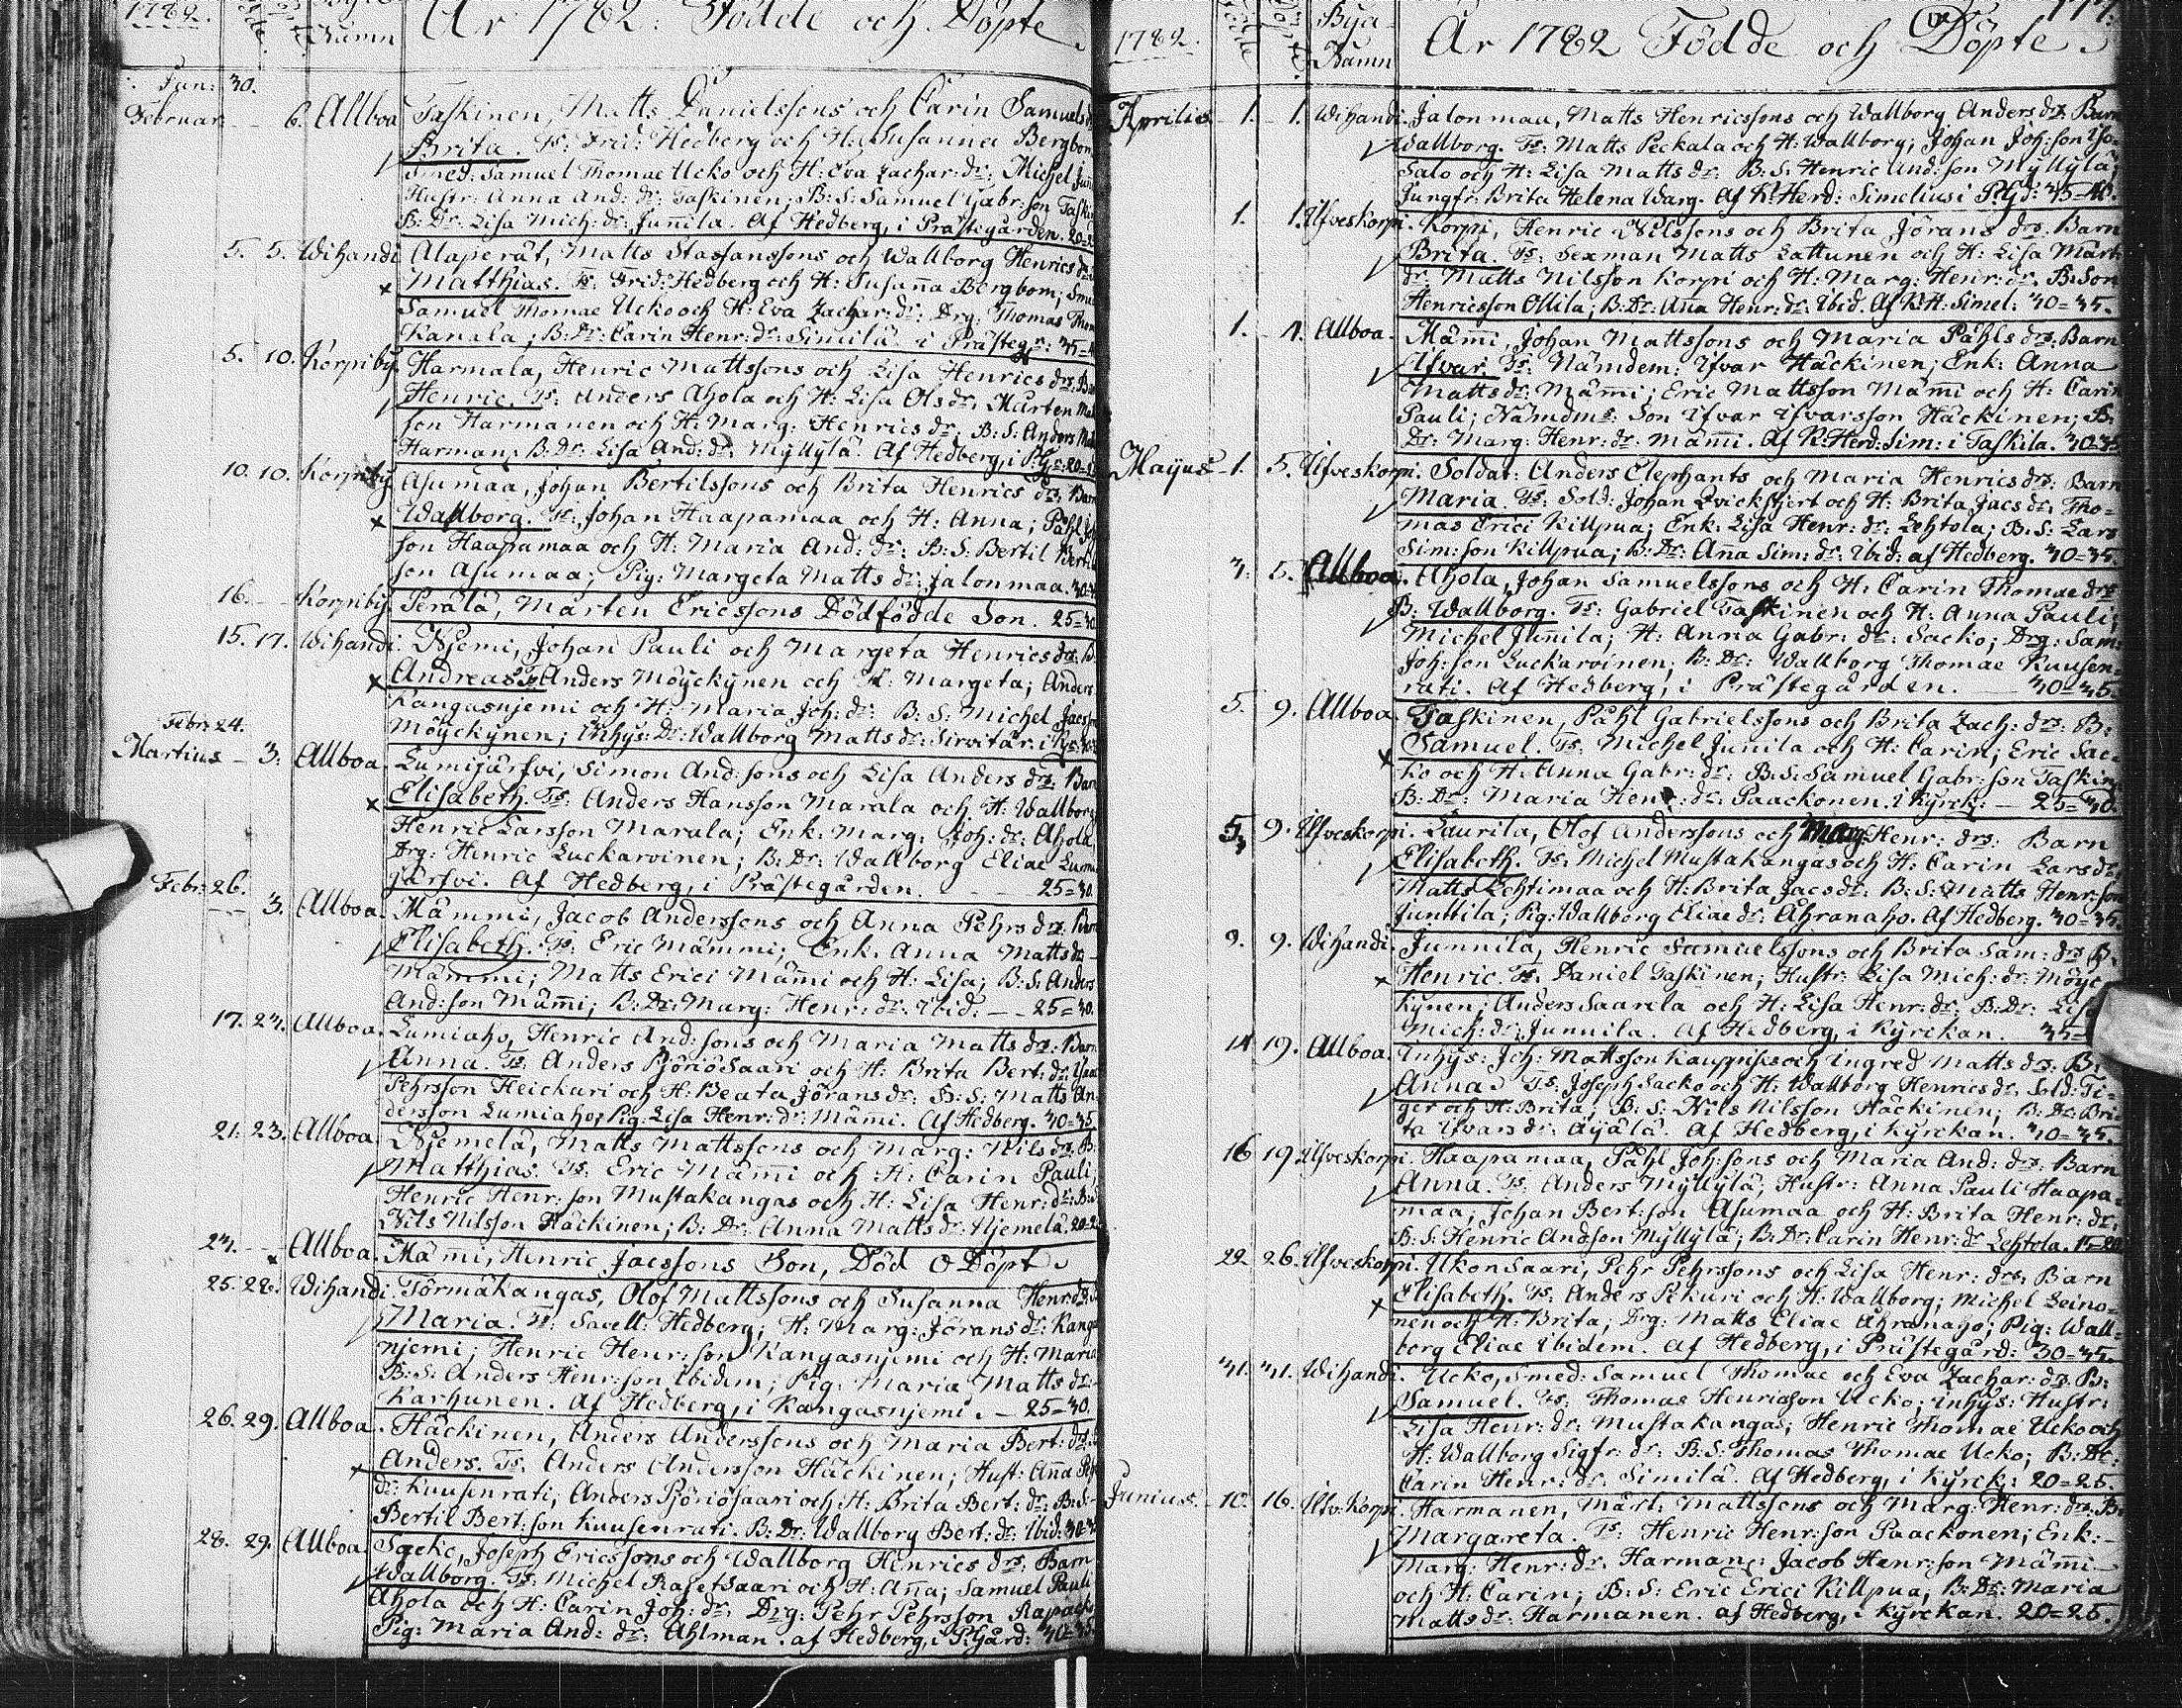 1782.
Namn
År 1782: Födde och Döpte.
Jan: 30.
Februar. 6. Allboa Taskinen, Matts Danielssons och Carin Samuels
Brita. Ts: Frid: Hedberg och H: Susanna Bergbom
Smed: Samuel Thomae Ucko och H: Eva Zachar: dr; Michel
Hustr: Anna And: dr: Taskinen; B: S: Samuel Gabr: son
B: Dr: Lisa Mich: dr: Junnila. Af Hedberg, i Prästegården.
5. 5. Wihandi Alaperät, Matts Staffanssons och Wallborg Henrics
Matthias. Ts: Frid: Hedberg och H: Susanna Bergbom;
Samuel Thomae Ucko och H: Eva Zachar: dr: Drg: Thomas
Kanala; B: Dr: Carin Henr: dr: Similä. i Prästeg:
5. 10. Korpiby. Harmala, Henric Mattssons och Lisa Henrics drs:
Henric. Ts: Anders Ahola och H: Lisa Ols dr; Mårten
son Harmanen och H: Marg: Henrics dr: B: S: Anders
Harman; B: Dr: Lisa And: dr: Myllylä. Af Hedberg, i
10. 10. Korpiby Asumaa, Johan Bertilssons och Brita Henrics drs: Barn
Wallborg. Ts: Johan Haapamaa och H: Anna; Påhl
son Haapamaa och H: Maria And: dr: B: S: Bertil
son Asumaa; Pig: Margeta Matts dr: Jalonmaa.
16. Korpiby. Perälä, Mårten Ericssons Dödfödde Son. 25=30
15. 17. Wihandi. Njemi, Johan Pauli och Margeta Henrics drs: B:
Andreas. Ts: Anders Möyckynen och H: Margeta; Anders
Kangasnjemi och H: Maria Joh: dr: B: S: Michel
Möyckynen; Inhys: Dr: Wallborg Matts dr:
Febr: 24.
Martius 3. Allboa. Lumijärfvi, Simon And: sons och Lisa Anders drs: Barn
Elisabeth. Ts: Anders Hansson Marala och H: Wallborg
Henric Larsson Marala; Enk: Marg: Joh: dr: Ahola;
Drg: Henric Luckaroinen; B: Dr: Wallborg Eliae
järfvi. Af Hedberg, i Prästegården. 25=30.
Febr: 26.
3. Allboa. Mämmi, Jacob Anderssons och Anna Pehrs drs:
Elisabeth. Ts: Eric Mämmi; Enk. Anna Matts dr
Mämmi; Matts Erici Mämi och H: Lisa; B: S: Anders
And: son Mämi; B: Dr: Marg: Henr: dr. Ibid. 25=30.
17. 24. Allboa. Lumiaho, Henric And: sons och Maria Matts drs: Barn
Anna. Ts: Anders Pjöriösaari och H: Brita Bert: dr:
Pehrsson Heickuri och H: Beata Jörans dr: B: S: Matts An-
dersson Lumiaho; Pig: Lisa Henr: dr: Mämi. Af Hedberg. 30=35.
21. 23. Allboa. Njemelä, Matts Mattssons och Marg: Nils drs: B:
Matthias. Ts: Eric Mämi och H: Carin Pauli;
Henric Henr: son Mustakangas och H: Lisa Henr: dr:
Nils Nilsson Häckinen; B: Dr: Anna Matts dr: Njemelä.
24. Allboa. Mämi, Henric Jacssons Son, Död O Döpt.
25. 28. Wihandi. Törmäkangas, Olof Mattssons och Susanna Henr: drs:
Maria. Ts: Sacell: Hedberg; H: Marg: Jörans dr:
njemi; Henric Henr: son Kangasnjemi och H: Maria
B: S: Anders Henr: son Ibidem; Pig: Maria Matts dr:
Karhunen. Af Hedberg, i Kangasnjemi. 25=30.
26. 29. Allboa. Häckinen, Anders Anderssons och Maria Bert: drs:
Anders. Ts: Anders Andersson Häckinen; Hust: Anna
dr: Kuusenrati; Anders Pjöriösaari och H: Brita Bert: dr: B: S:
Bertil Bert: son Kuusenrati. B: Dr: Wallborg Bert: dr: Ibid:
28. 29. Allboa. Sacko, Joseph Ericssons och Wallborg Henrics drs: Barn
Wallborg. Ts: Michel Rasetsaari och H: Anna; Samuel Pauli
Ahola och H: Carin Joh: dr: Drg: Pehr Pehrsson
Pig: Maria And: dr: Ahlman. af Hedberg, i P:Gård:
1782.
Bya-
Namn
År 1782 Födde och Döpte.
Aprilis 1. 1. Wihandi. Jalonmaa, Matts Henricssons och Wallborg Anders drs: Barn
Wallborg. Ts: Matts Peckala och H: Wallborg; Johan Joh: son
Salo och H: Lisa Matts dr: B: S: Henric And: son Myllylä;
Jungfr: Brita Helena Warg. Af K: Herd: Simelius i P:Gd: 35=40.
1. 1. Ilfveskorpi. Korpi, Henric Nilssons och Brita Jörans drs. Barn
Brita. Ts: Sexman Matts Lattunen och H: Lisa Mårt:
dr: Matts Nilsson Korpi och H: Marg: Henr: dr. B: Son
Henricsson Ollila; B: Dr: Anna Henr: dr: Ibid. Af K:H: Simel: 30=35.
1. 1. Allboa. Mämi, Johan Mattssons och Maria Påhls drs: Barn
Ifvar. Ts: Nämdem: Ifvar Häckinen; Enk: Anna
Matts dr: Mämi; Eric Mattsson Mämi och H: Carin
Pauli; Nämdms: Son Ifvar Ifvarsson Häckinen; B:
Dr: Marg: Henr: dr: Mämi. Af K: Herd: Sim: i Taskila. 30=35
Majus 1. 5. Ilfveskorpi. Soldat: Anders Elephants och Maria Henrics drs: Barn
Maria. Ts: Sold: Johan Qvickhjert och H: Brita Jacs dr; Tho-
mas Erici Killpua; Enk: Lisa Henr: dr: Lehtola; B: S: Lars
Sim: son Killpua; B: Dr: Anna Sim: dr: Ibid: af Hedberg. 30=35.
5. Allboa. Ahola, Johan Samuelssons och H: Carin Thomae drs
B: Wallborg. Ts: Gabriel Taskinen och H: Anna Pauli;
Michel Junnila; H: Anna Gabr: dr: Sacko; Drg: Sam:
Joh: son Luckaroinen; B: Dr: Wallborg Thomae Kuusen-
rati. Af Hedberg, i Prästegården. 30=35.
5. 9. Allboa. Taskinen, Påhl Gabrielssons och Brita Zach: drs: B:
Samuel. Ts: Michel Junila och H: Carin; Eric Sac-
ko och H: Anna Gabr: dr: B: S: Samuel Gabr: son Taskin
B: Dr: Maria Henr: dr: Paackonen. i Kyrck: 25=30.
5. 9. Ilfveskorpi. Laurila, Olof Anderssons och Marg: Henr: drs: Barn
Elisabeth. Ts: Michel Mustakangas och H: Carin Lars dr;
Matts Lehtimaa och H: Brita Jacs dr: B: S: Matts Henr: son
Junttila; Pig: Wallborg Eliae dr: Ahranaho. Af Hedberg. 30=35.
9. 9. Wihandi. Junnila, Henric Samuelssons och Brita Sam: drs B:
Henric. Ts: Daniel Taskinen; Hustr: Lisa Mich: dr: Möyc-
kynen; Anders Saarela och H: Lisa Henr: dr: B: Dr: Lisa
Mich: dr: Junnila. Af Hedberg, i Kyrckan.
14 19. Allboa. Inhys: Joh: Mattsson Kauppises och Ingred Matts drs: B:
Anna. Ts: Joseph Sacko och H: Wallborg Henrics dr: Sold: Ti-
ger och H: Brita; B: S: Nils Nilsson Häckinen; B: Dr: Bri-
ta Ifvars dr: Äijälä. Af Hedberg, i Kyrckan. 30=35.
16 19. Ilfveskorpi. Haapamaa, Påhl Joh: sons och Maria And: drs: Barn
Anna. Ts: Anders Myllylä; Hustr: Anna Pauli Haapa-
maa; Johan Bert: son Asumaa och H: Brita Henr: dr:
B: S: Henric Andson Myllylä; B: Dr: Carin Henr: dr Lehtola. 15=20
22 26. Ilfveskorpi. Ukonsaari, Pehr Pehrssons och Lisa Henr: drs: Barn
Elisabeth. Ts: Anders Pekuri och H: Wallborg; Michel Leino-
nen och H: Brita; Drg: Matts Eliae Ahranaho; Pig: Wall-
borg Eliae Ibidem. Af Hedberg, i Prästegård: 30=35.
31. 31. Wihandi. Ucko, Smed: Samuel Thomae och Eva Zachar: drs: B:
Samuel. Ts: Thomas Henricsson Ucko; Inhys: Hustr:
Lisa Henr: dr: Mustakangas; Henric Thomae Ucko och
H: Wallborg Sigfr: dr: B: S: Thomas Thomae Ucko; B: Dr:
Carin Henr: dr: Similä. Af Hedberg, i Kyrck: 20=25.
Junius. 10. 16. Ilfv: Korpi. Harmanen, Mårt: Mattssons och Marg: Henr: drs: B:
Margareta. Ts: Henric Henr: son Paackonen; Enk:
Marg: Henr: Dr. Harman: Jacob Henr: son Mämi
och H: Carin; B: S: Eric Erici Killpua; B: Dr: Maria
Matts dr: Harmanen. af Hedberg, i Kyrckan. 20=25.